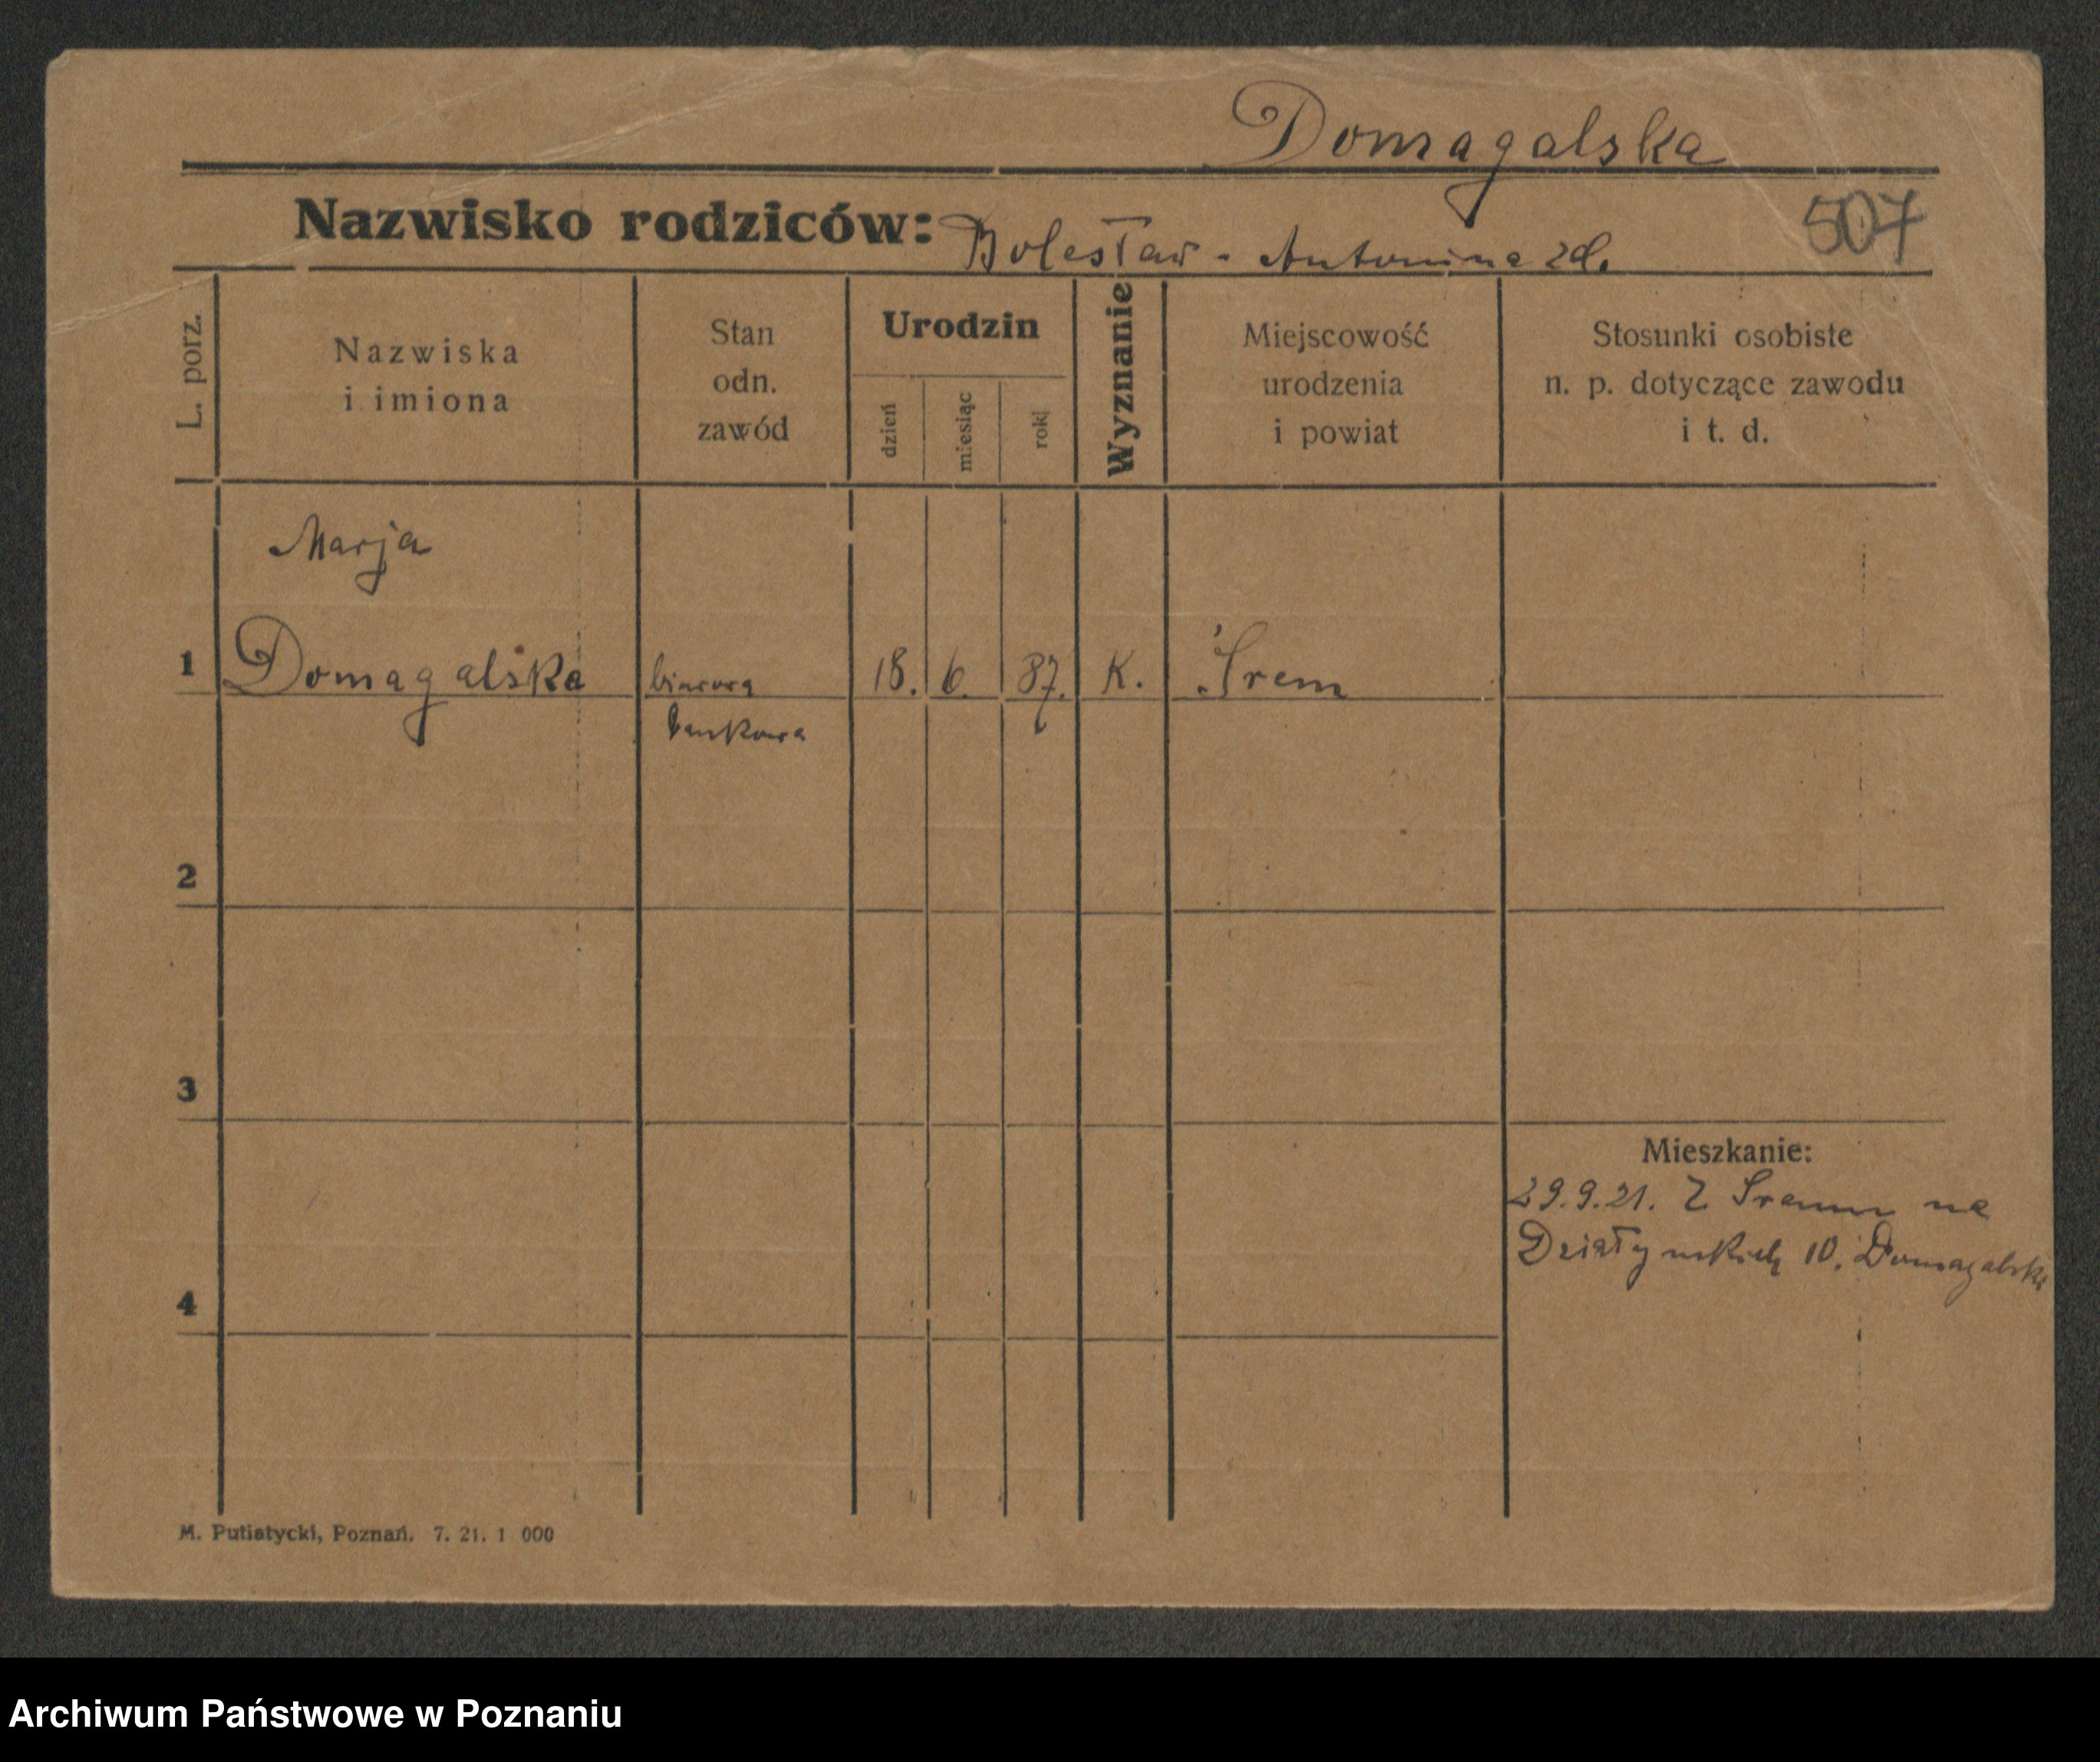 Domagalska
Nazwisko rodziców: Bolesław - Antonina zd.
507
L. porz.
Nazwiska
i imiona
Stan
odn.
zawód
Urodzin
dzień
miesiąc
rok
Wyznanie
Miejscowość
urodzenia
i powiat
Stosunki osobiste
n. p. dotyczące zawodu
i t. d.
Marja
1 Domagalska biurowa 18. 6. 87. K. Śrem
bankowa
2
3
Mieszkanie:
29.9.21. Z Śremu na
Działyńskich 10. Domagalska
4
M. Putiatycki, Poznań. 7. 21. 1 000
Archiwum Państwowe w Poznaniu